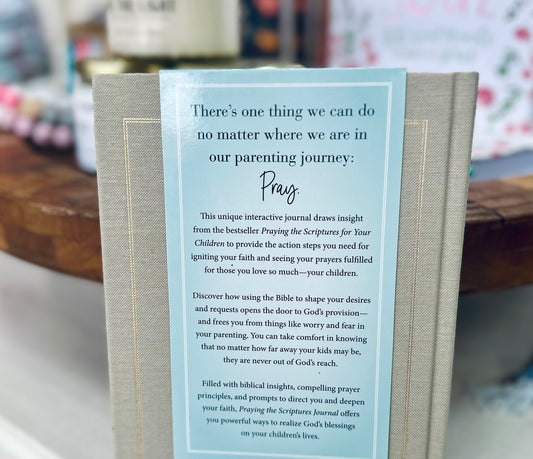 There's one thing we can do
no matter where we are in
our parenting journey:
Pray.
This unique interactive journal draws insight
from the bestseller Praying the Scriptures for Your
Children to provide the action steps you need for
igniting your faith and seeing your prayers fulfilled
for those you love so much—your children.
Discover how using the Bible to shape your desires
and requests opens the door to God's provision—
and frees you from things like worry and fear in
your parenting. You can take comfort in knowing
that no matter how far away your kids may be,
they are never out of God's reach.
Filled with biblical insights, compelling prayer
principles, and prompts to direct you and deepen
your faith, Praying the Scriptures Journal offers
you powerful ways to realize God's blessings
on your children's lives.